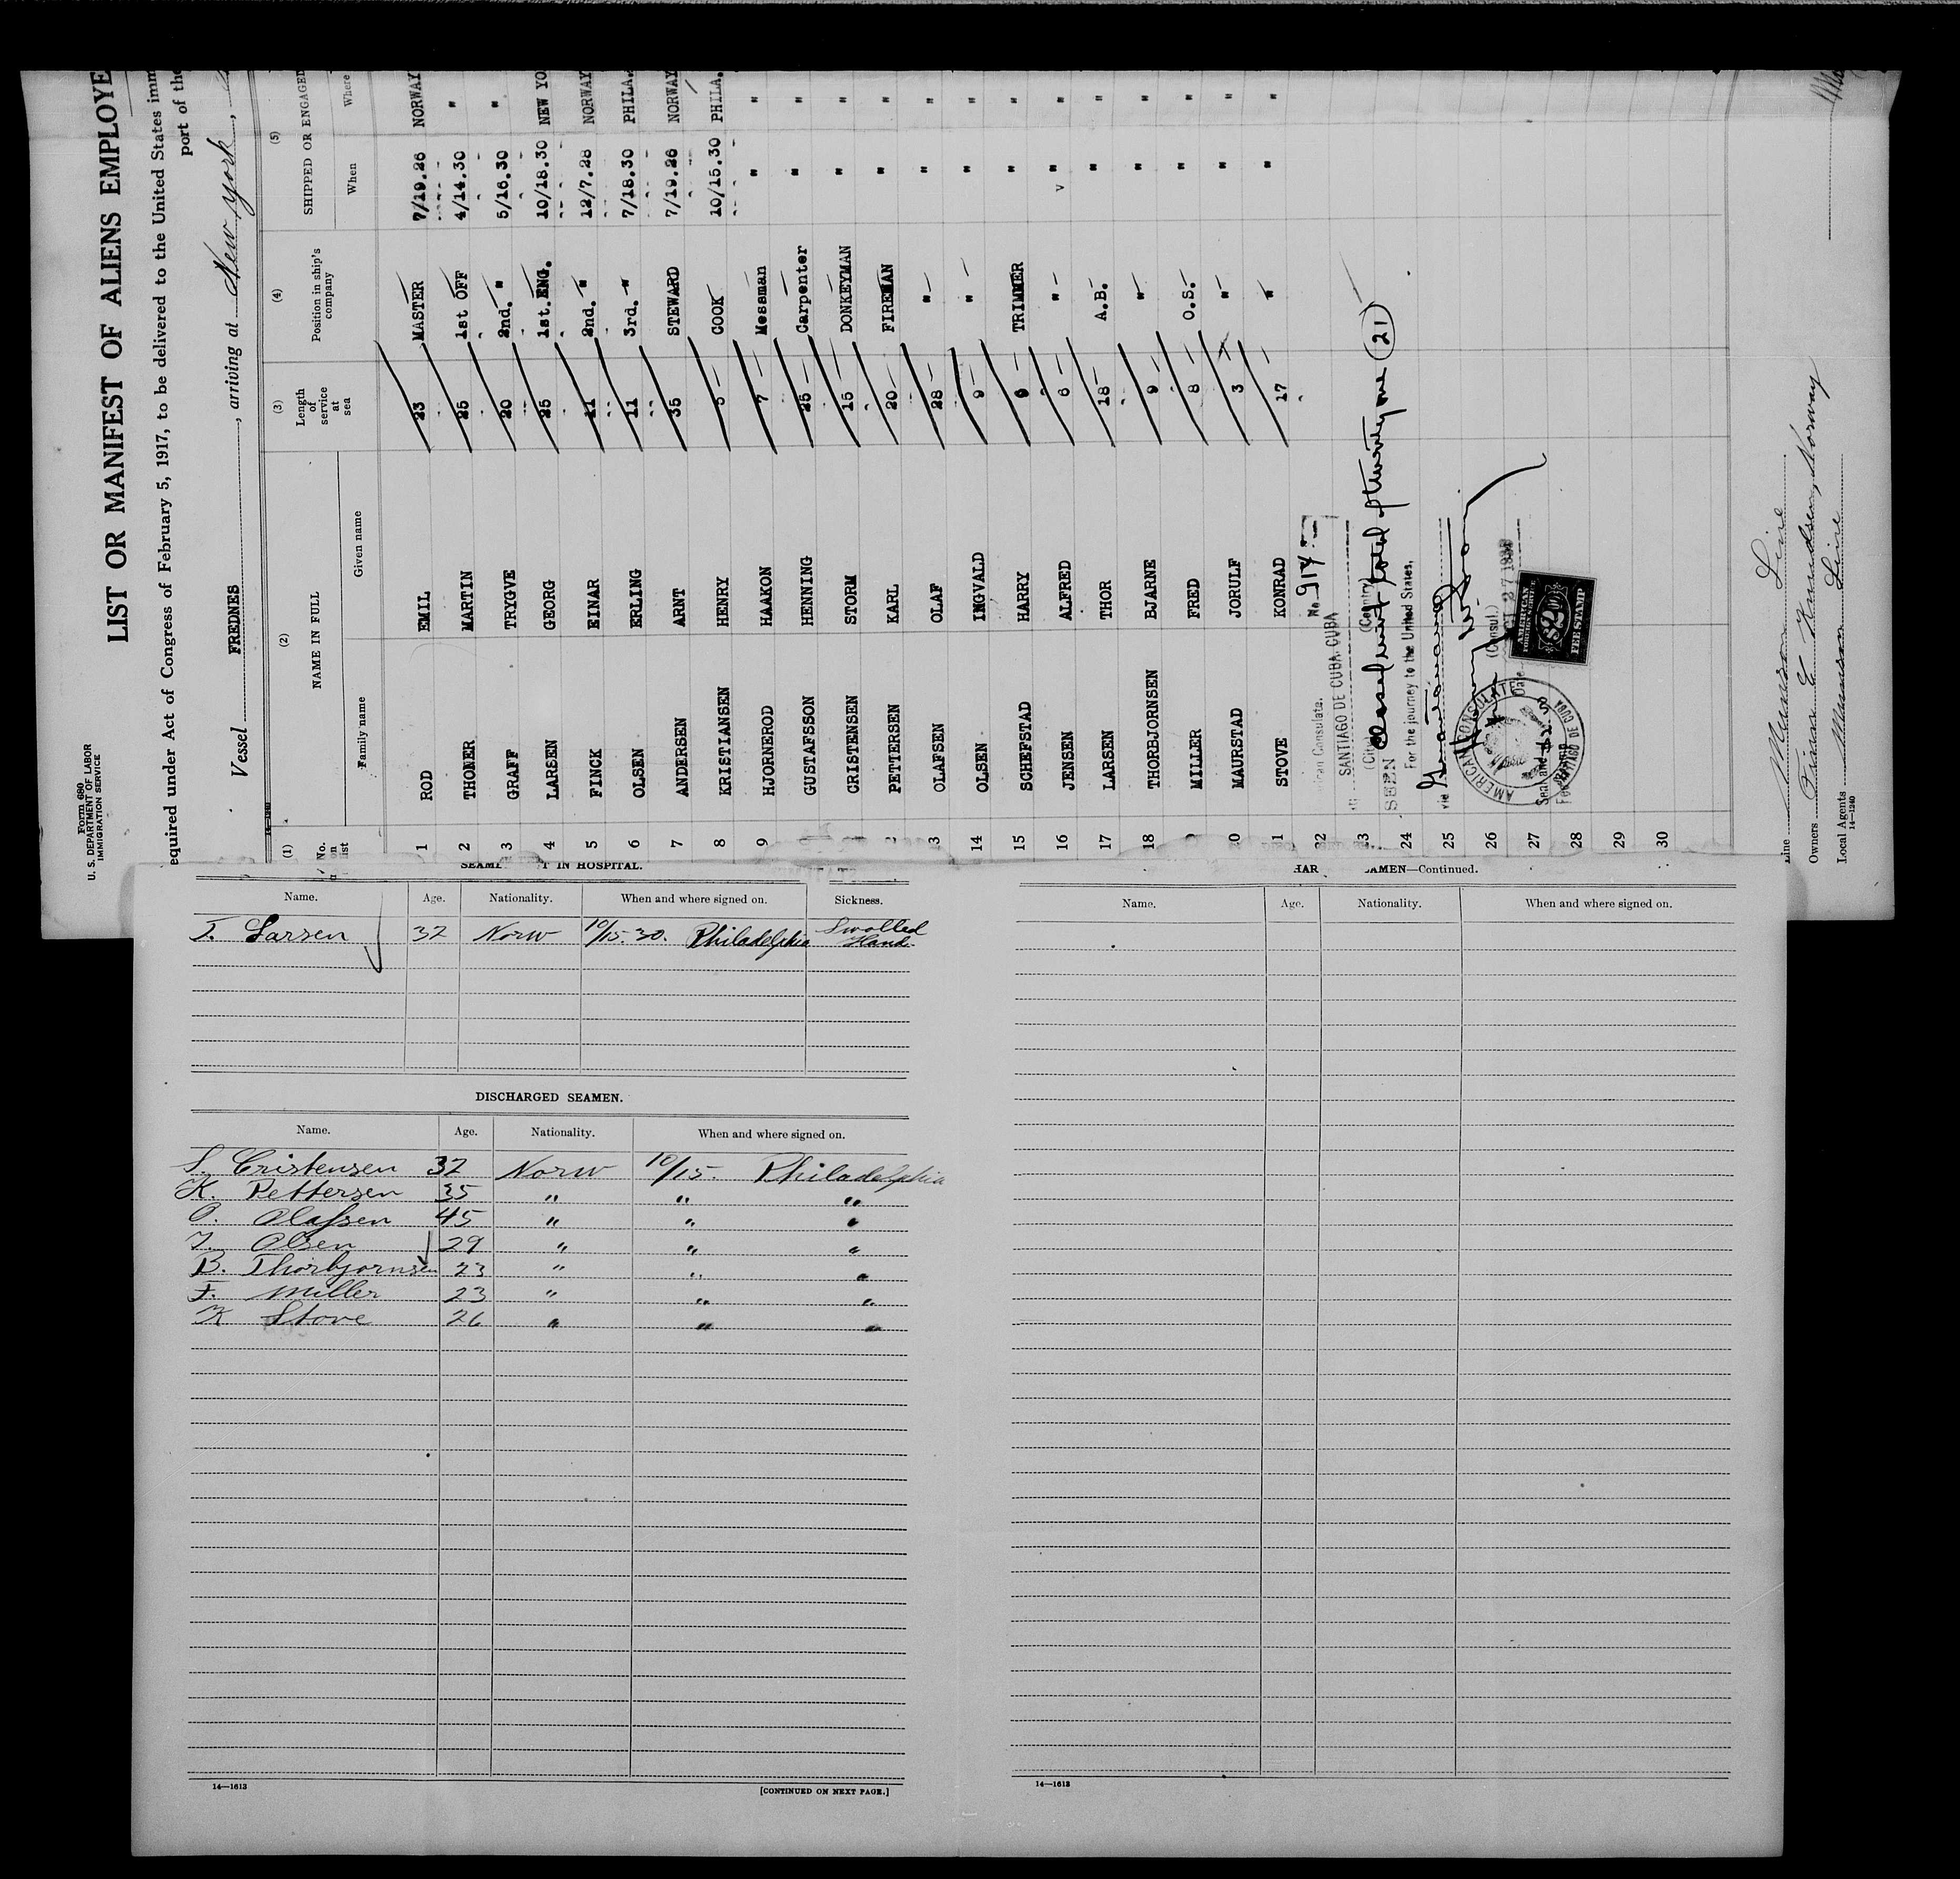 Form 680
U. S. DEPARTMENT OF LABOR
IMMIGRATION SERVICE
LIST OR MANIFEST OF ALIENS EMPLOYE
equired under Act of Congress of February 5, 1917, to be delivered to the United States imm
port of the
Vessel FREDNES, arriving at New York,
(1) (2) (3) (4) (5)
No. on list NAME IN FULL Length of service at sea Position in ship's company SHIPPED OR ENGAGED
Family name Given name When Where
1 ROD EMIL 23 MASTER 7/19.26 NORWAY
2 THONER MARTIN 25 1st OFF 4/14.30 "
3 GRAFF TRYGVE 20 2nd. " 5/16.30 "
4 LARSEN GEORG 25 1st. ENG. 10/18.30 NEW YO
5 FINCK EINAR 11 2nd. " 12/7.28 NORWAY
6 OLSEN ERLING 11 3rd. " 7/18.30 PHILA.
7 ANDERSEN ARNT 35 STEWARD 7/19.26 NORWAY
8 KRISTIANSEN HENRY 5 COOK 10/15.30 PHILA.
9 HJORNEROD HAAKON 7 Messman " "
GUSTAFSSON HENNING 25 Carpenter " "
CRISTENSEN STORM 15 DONKEYMAN " "
2 PETTERSEN KARL 20 FIREMAN " "
3 OLAFSEN OLAF 28 " " "
14 OLSEN INGVALD 9 " " "
15 SCHEFSTAD HARRY 9 TRIMMER " "
16 JENSEN ALFRED 6 " " "
17 LARSEN THOR 18 A.B. " "
18 THORBJORNSEN BJARNE 9 " " "
9 MILLER FRED 8 O.S. " "
20 MAURSTAD JORULF 3 " " "
1 STOVE KONRAD 17 " " "
22 ican Consulate. No. 914
SANTIAGO DE CUBA, CUBA
23 (City) (Country)
SEEN total of twenty one (21)
24 For the journey to the United States,
25 via
26 (Consul.)
27 Seal and Date
AMERICAN CONSULATE
SANTIAGO DE CUBA
AMERICAN
FOREIGN SERVICE
$2.00
FEE STAMP
28
29
30
Line Munson Line
Owners E Knudsen, Norway
Local Agents Munson Line
14—1240
SEAME T IN HOSPITAL.
Name. Age. Nationality. When and where signed on. Sickness.
T. Larsen 32 Norw 10/15.30. Philadelphia Swolled
Hand.
DISCHARGED SEAMEN.
Name. Age. Nationality. When and where signed on.
S. Cristensen 32 Norw 10/15. Philadelphia
K. Pettersen 35 " " "
O. Olafsen 45 " " "
I. Olsen 29 " " "
B. Thorbjornsen 23 " " "
F. Miller 23 " " "
K Stove 26 " " "
14—1613
[CONTINUED ON NEXT PAGE.]
HAR AMEN—Continued.
Name. Age. Nationality. When and where signed on.
14—1613